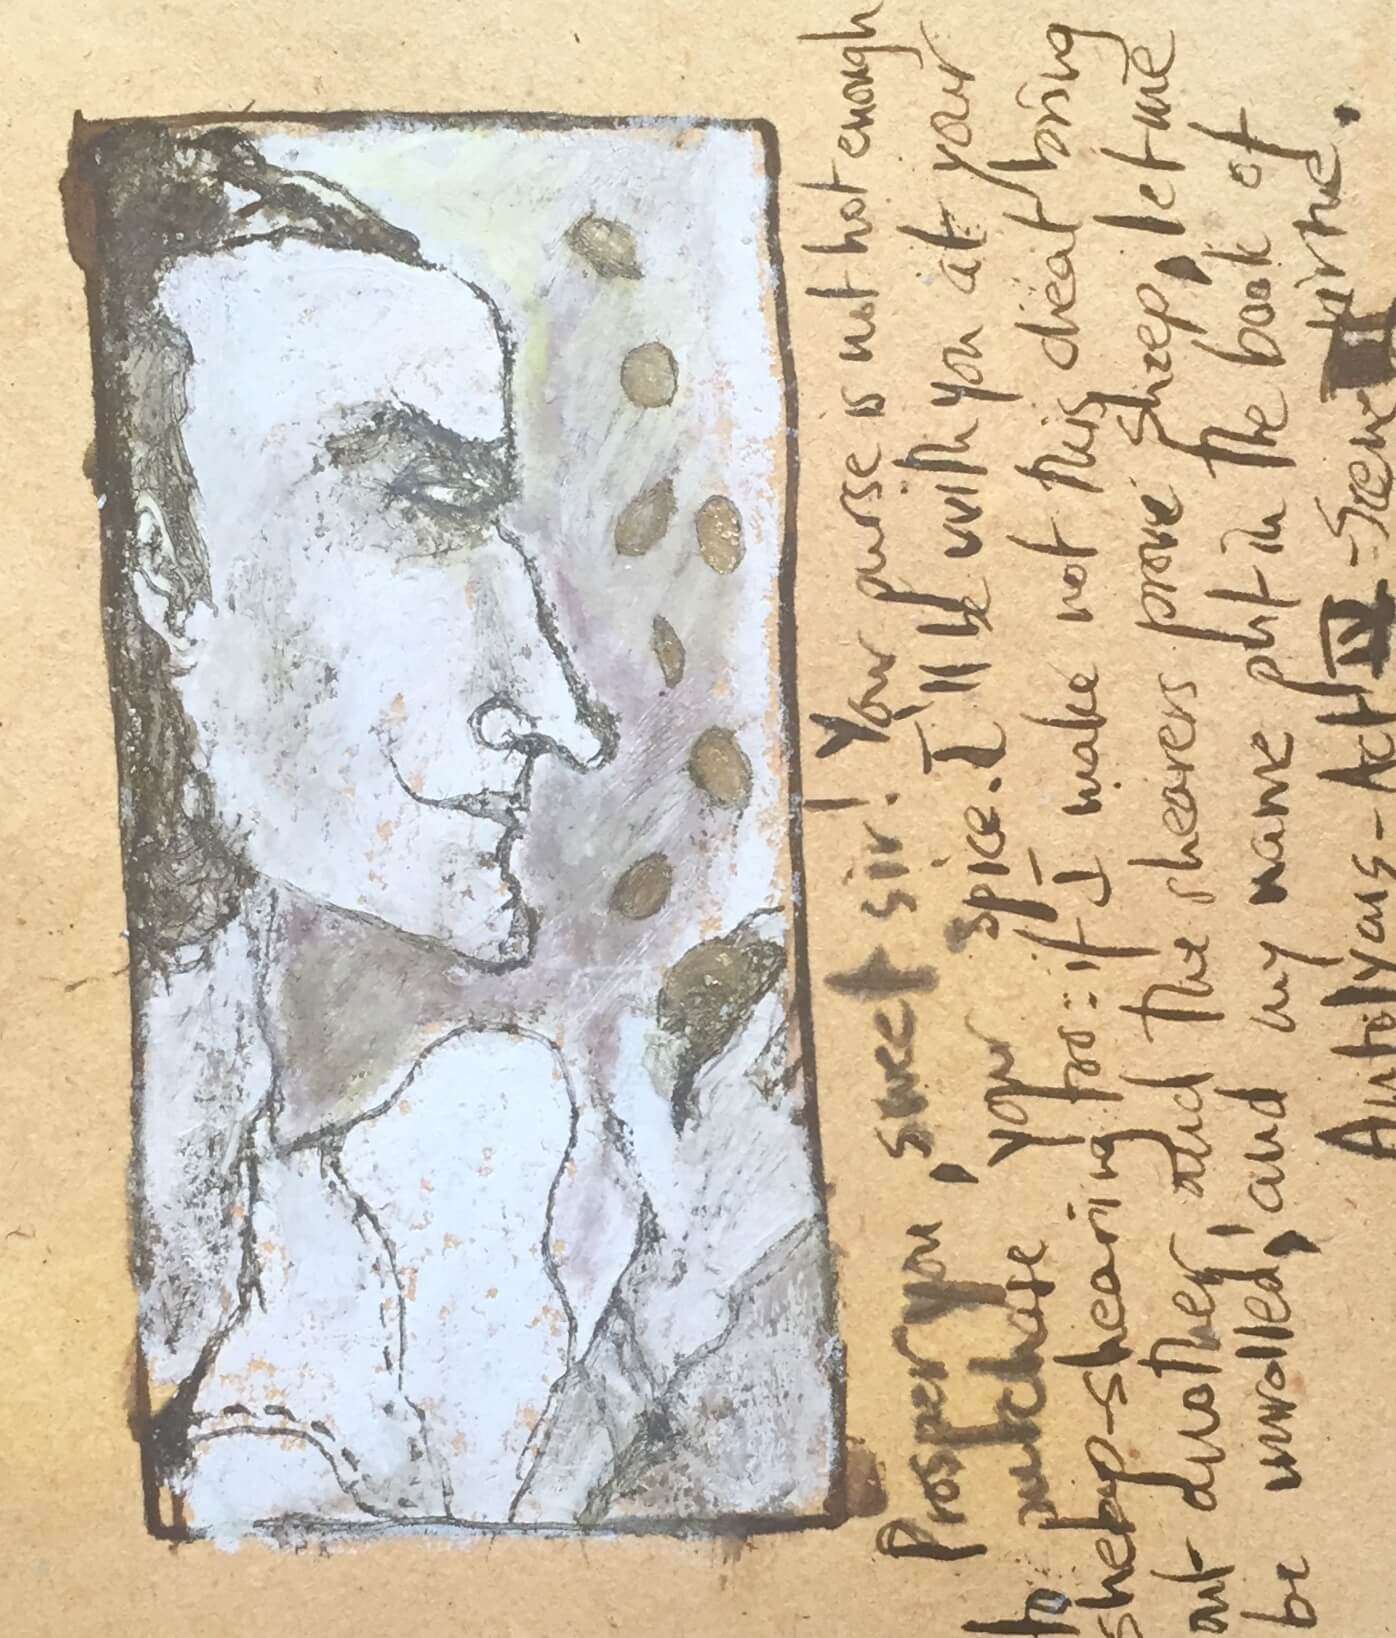 Prosper you, sweet sir! Your purse is not hot enough
to purchase your spice. I'll be with you at your
sheep-shearing too: if I make not this cheat bring
out another, and the shearers prove sheep, let me
be unrolled, and my name put in the book of
Autolycus - Act IV - Scene II